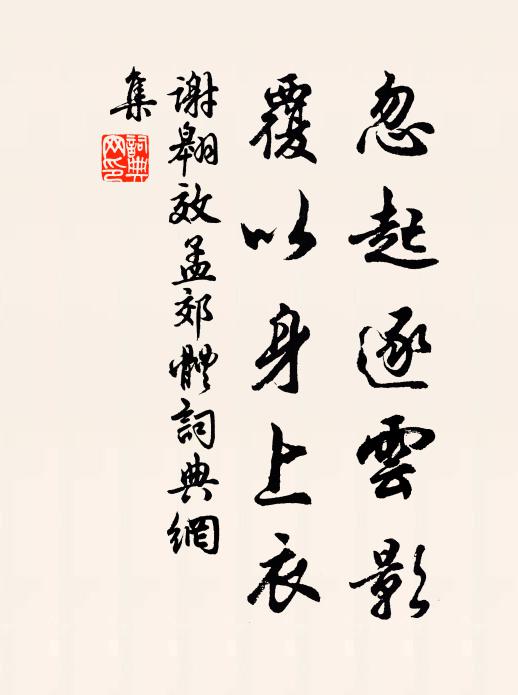 忽起逐雲影
覆以身上衣
謝翱效孟郊體詞典網
集
詞典
網印